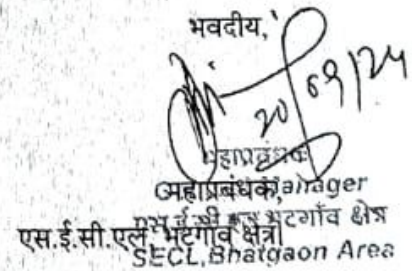 भवदीय,
20/09/24
महाप्रबंधक
महाप्रबंधक,
Manager
एस.ई.सी.एल. भटगाँव क्षेत्र
भटगाँव क्षेत्र
SECL, Bhatgaon Area